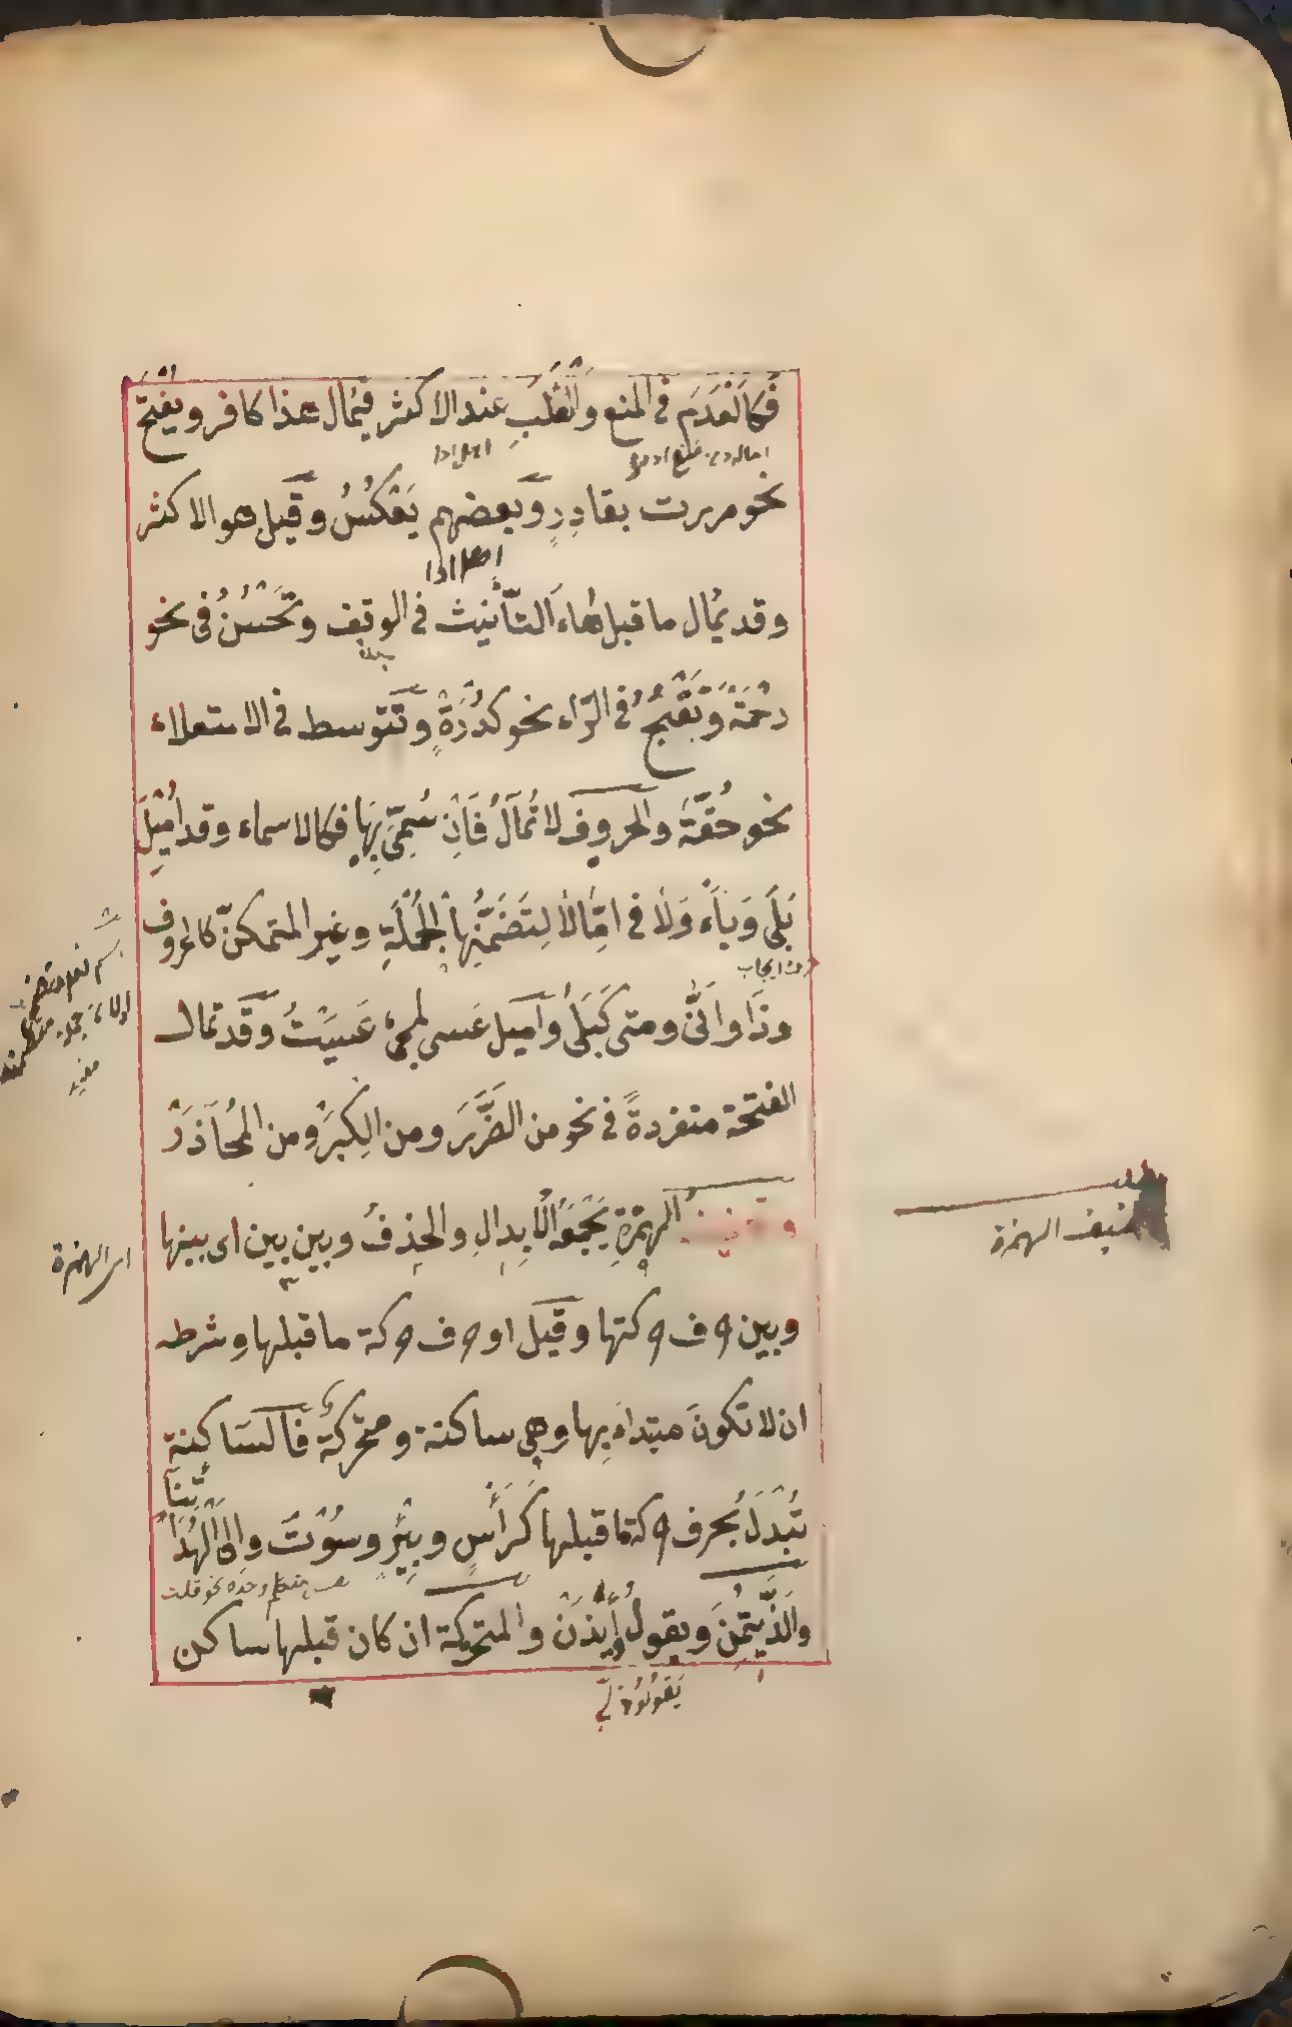 فَكَالْعَدَمِ في المنع والْغَلَبِ عند الاكثر فيُمال هذا كافر ويفتح
نحو مررت بقادِرٍ وبعضهم يَعْكُسُ وقيل هو الاكثر
وقد يُمال ما قبل هاء التأنيث في الوقف وتَحْسُنُ في نحو
رحْمَة وَتَقْبُحُ في الرّاء نحو كُدْرَةٍ وتتوسط في الاستعلاء
نحو حُقَّة والحروف لا تُمَالُ فَاِنْ سُمِّيَ بِهَا فكالاسماء وقد اُمِيْلَ
بَلَى وَيَاء وَلَا في اِمَّالا لِتَضَمُّنِهَا الْجُمْلَةِ وغير المتمكنّ كالحروف
وذَا واَنَّى ومتى كَبَلَى واُميل عَسى لمجئ عَسَيْتُ وقد تمال
الفتحة منفردةً في نحو من الضَّرَرِ ومن الكِبَرِ ومن الْمُحَاذَرْ
الهمزةِ يَجْمَعُهُ الْاِبدالِ والحذفُ وبين بين اى بينها
وبين حرف حركتها وقيل او حرف حركة ما قبلها وشرطه
ان لا تكونَ مبتداة بها وهي ساكنة ومتحركةٌ فالسَاكِنة
تُبْدَلُ بحرف حركة ما قبلها كَرَأسٍ وبِيْرٍ وسُوْتُ والى الْهُدَاتِنَا
والَّذِيتُمِنَ ويقولُ اْيذَنْ والمتحركة ان كان قبلها ساكن
حرف ايجاب
اى الهمزة
تخفيف الهمزة
يَقُولُوذَنْ لِّي